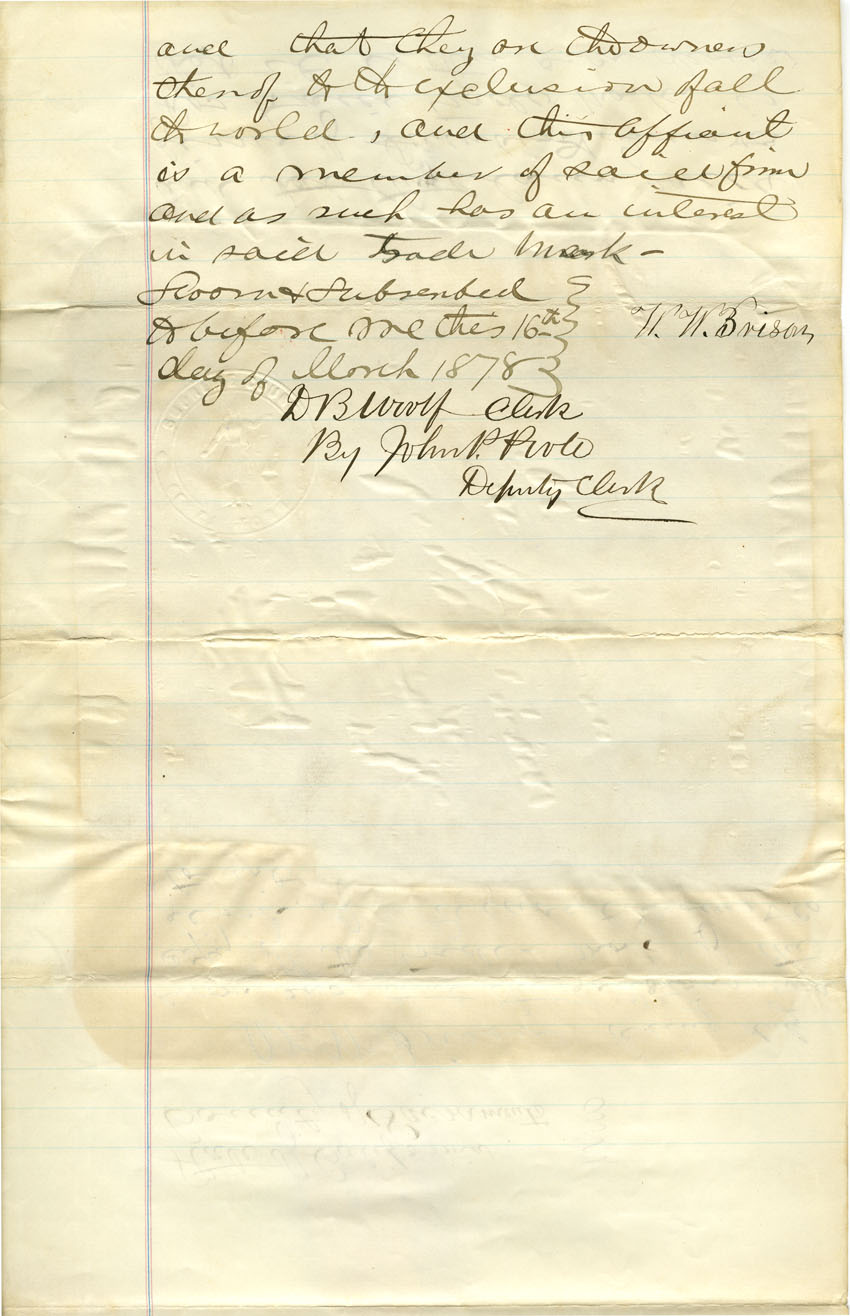 and that they are the owners
thereof to the exclusion of all
the world, and this affiant
is a member of said firm
and as such has an interest
in said trade mark -
Sworn & Subscribed
to before me this 16th
day of March 1878
W. W. Brison
D B Woolf Clerk
By John P. Poole
Deputy Clerk